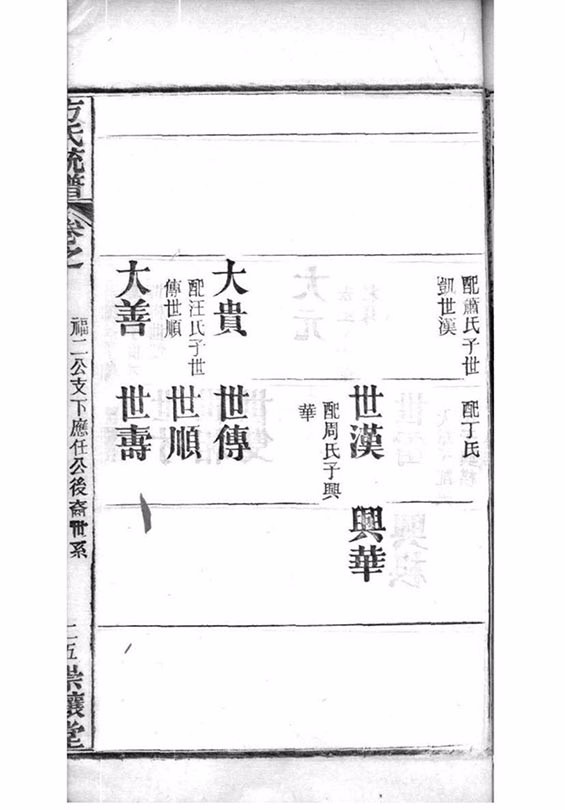 配蕭氏子世
凱世漢
大貴
配汪氏子世
傳世順
大善
配丁氏
世漢
配周氏子興
華
世傳
世順
世壽
興華
方氏統譜
卷之
福二公支下應任公後裔世系
二五
崇讓堂